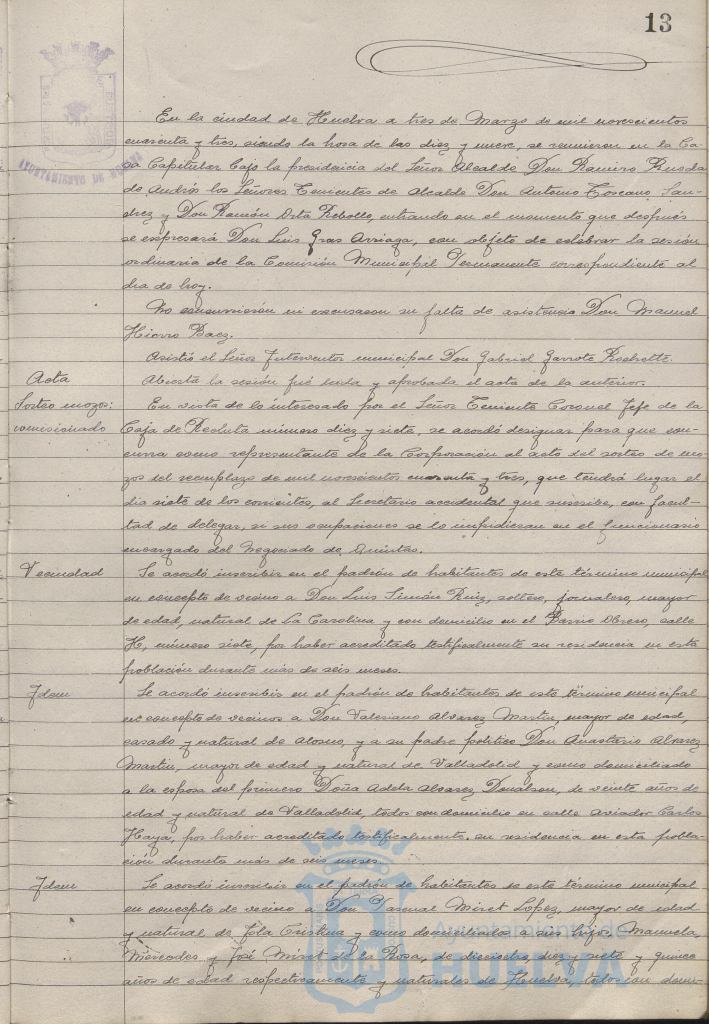 13
AYUNTAMIENTO DE
En la ciudad de Huelva a tres de Marzo de mil novescientos
cuarenta y tres, siendo la hora de las diez y nueve, se reunieron en la Ca-
sa Capitular bajo la presidencia del Señor Alcalde Don Ramiro Rueda
de Andrés los Señores Tenientes de Alcalde Don Antonio Toscano San-
chez y Don Ramón Orta Rebollo, entrando en el momento que después
se espresará Don Luis Gras Arriaga, con objeto de celebrar la sesión
ordinaria de la Comisión Municipal Permanente correspondiente al
dia de hoy.
No concurrieron ni escusaron su falta de asistencia Don Manuel
Hierro Baez.
Asistió el Señor Interventor municipal Don Gabriel Garrote
Acta
Abierta la sesión fué leida y aprobada el acta de la anterior.
Sorteo mozos:
comisionado
En vista de lo interesado por el Señor Teniente Coronel Jefe de la
Caja de Recluta número diez y siete, se acordó designar para que con-
curra como representante de la Corporación al acto del sorteo de mo-
zos del reemplazo de mil novescientos cuarenta y tres, que tendrá lugar el
dia siete de los corrientes, al Secretario accidental que suscribe, con facul-
tad de delegar, si sus ocupaciones se lo impidieran en el funcionario
encargado del Negociado de Quintas.
Vecindad
Se acordó inscribir en el padrón de habitantes de este término municipal
en concepto de vecino a Don Luis Simón Ruiz, soltero, jornalero, mayor
de edad, natural de La Carolina y con domicilio en el Barrio Obrero, calle
H, número siete, por haber acreditado testificalmente su residencia en esta
población durante más de seis meses.
Idem
Se acordó inscribir en el padrón de habitantes de este término municipal
en concepto de vecinos a Don Valeriano Alvarez Martin, mayor de edad,
casado y natural de Alosno, y a su padre politico Don Anastasio Alvarez
Martin, mayor de edad y natural de Valladolid y como domiciliado
a la esposa del primero Doña Adela Alvarez Donalson, de veinte años de
edad y natural de Valladolid, todos con domicilio en calle Aviador Carlos
Haya, por haber acreditado testificalmente su residencia en esta pobla-
ción durante más de seis meses.
Idem
Se acordó inscribir en el padrón de habitantes de este término municipal
en concepto de vecino a Don Pascual Miret Lopez, mayor de edad
y natural de Isla Cristina y como domiciliados a sus hijos Manuela,
Mercedes y José Miret de la Rosa, de dieciocho, diez y siete y quince
años de edad respectivamente y naturales de Huelva, todos con domi-
Ayuntamiento de
HUELVA